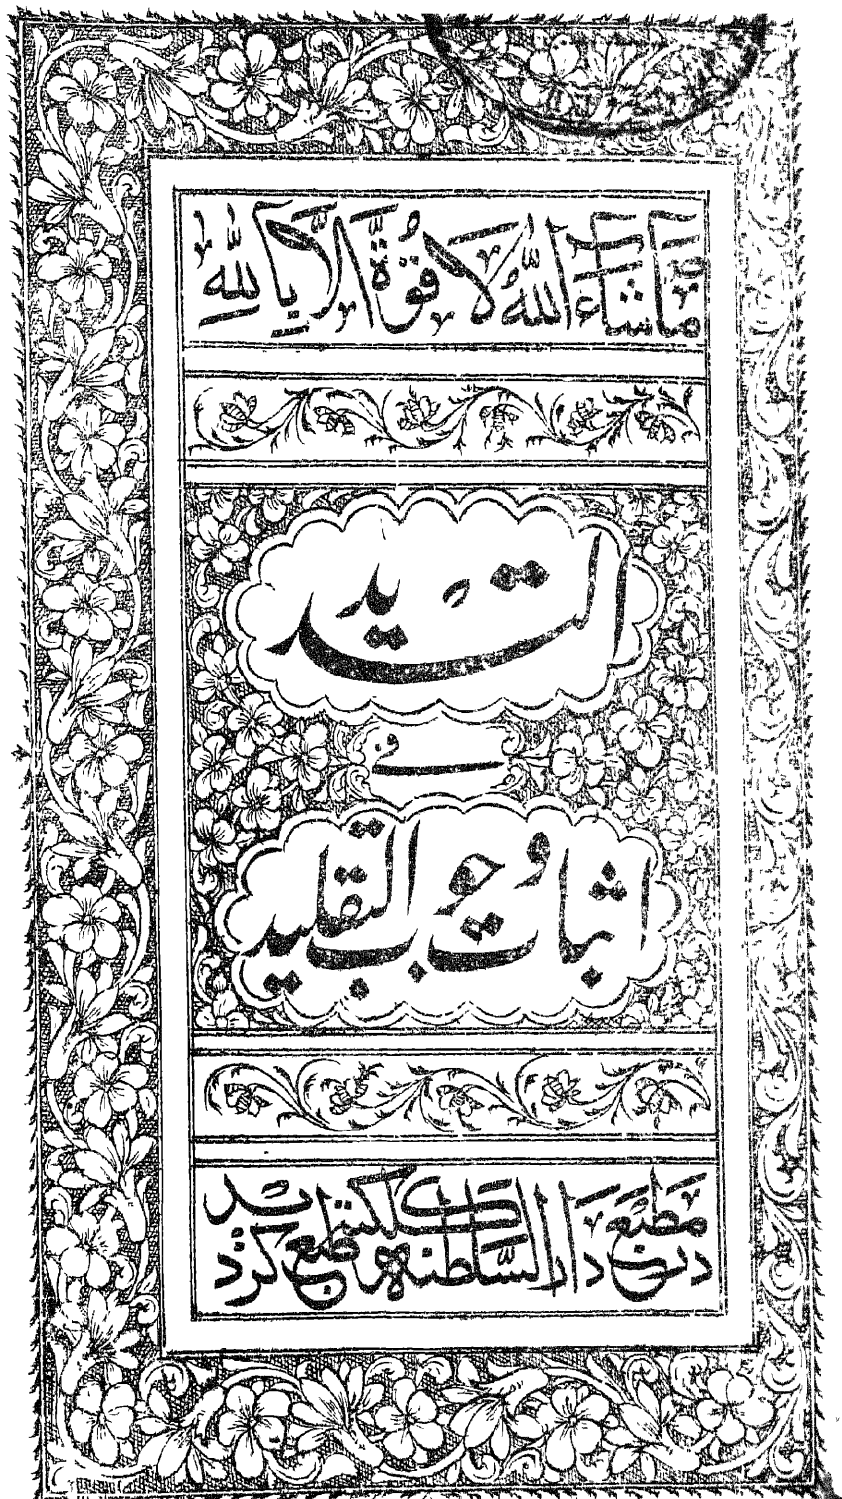 ماشاء الله لا قوة الا بالله
التسديد
في
اثبات وجوب التقليد
در مطبع دار السلطنه کلکته طبع گردید